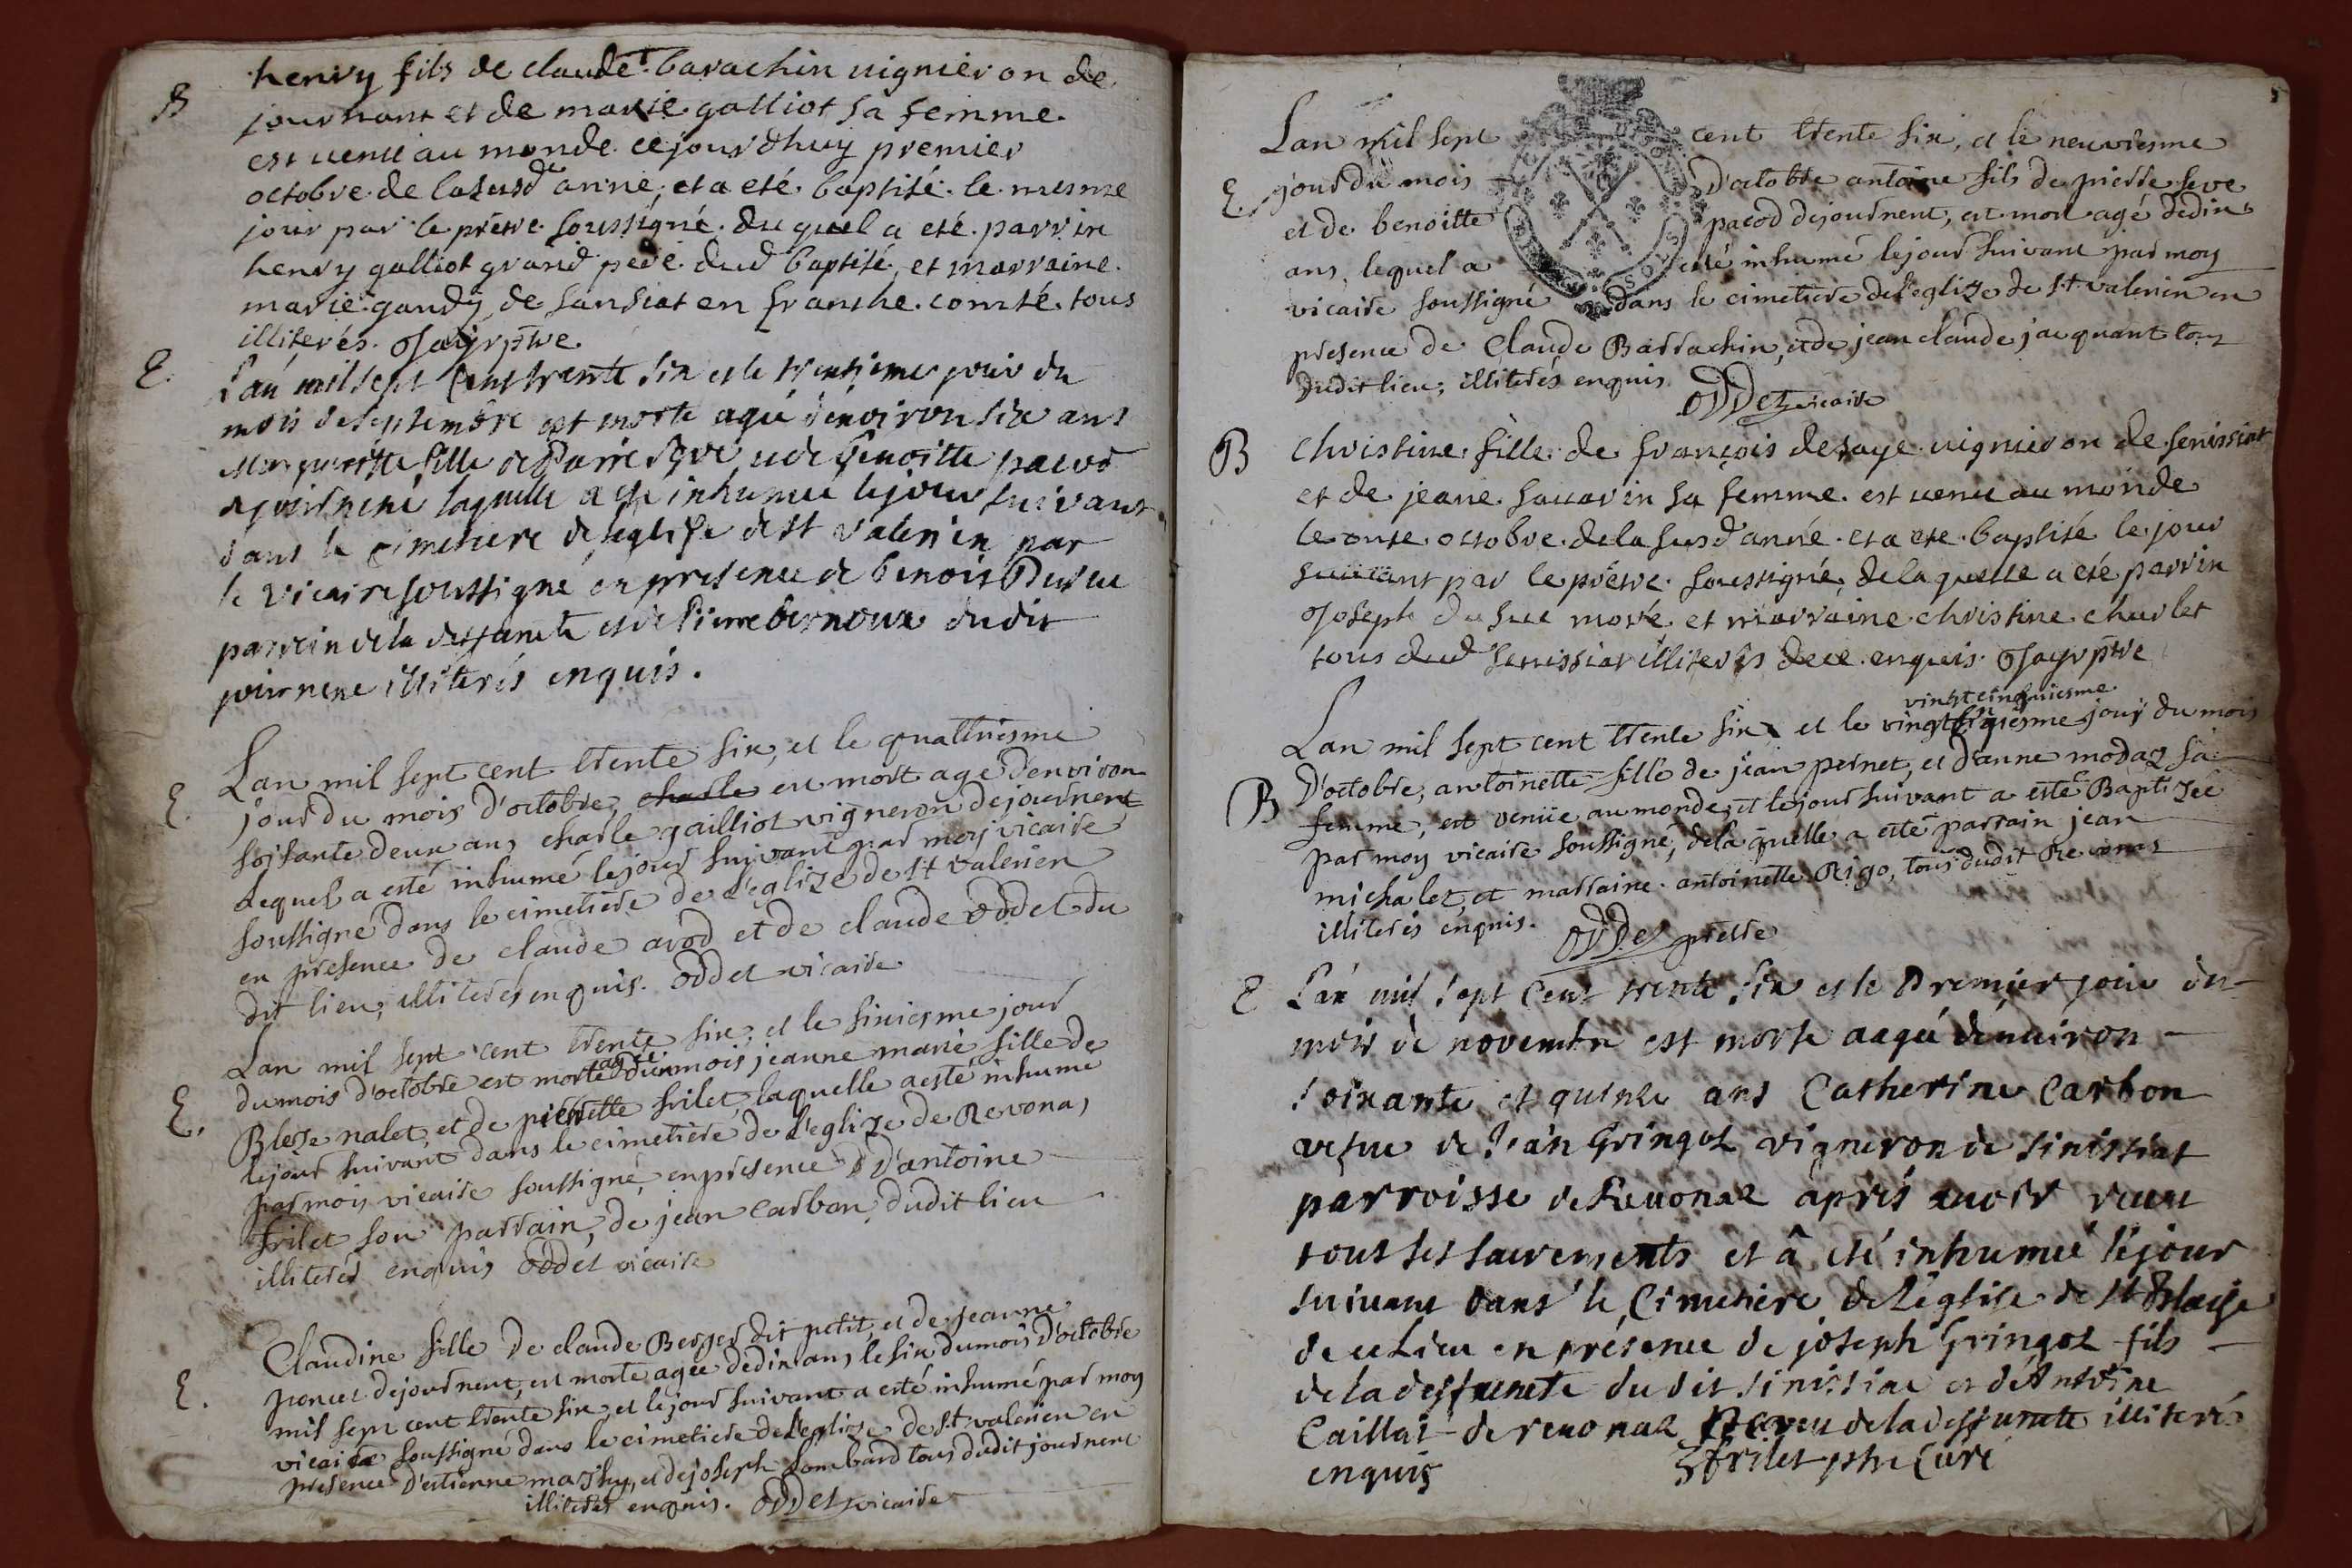 B henry fils de claude barachin uignieron de
journant et de marie galliot sa femme
est uenu au monde cejourdhuy premier
octobre de lasusde anné, et a eté baptisé le mesme
jour par le prêtre soussigné duquel a eté parrin
henry galliot grand pere dud baptisé, et marraine
marie gandy de sansiat en franche comté tous
illiterés. Joayr ptre
E. Lan mil sept cent trente six et le trentieme jour du
mois de septembre est morte agée denviron six ans
Margueritte fille de Pierre seve et de benoitte pacod
de journent laquelle a été inhumée lejour suivant
dans le cimetiere de leglise de st valerien par
le vicaire soussigné en presence de benoist
parrein de la deffuncte et de Pierre bernoux dudit
journent illiterés enquis.
E. Lan mil sept cent trente six, et le quatriesme
jour du mois d'octobre, charle est mort agé d'environ
soisante deux ans charle gailliot vigneron de journent
Lequel a esté inhumé lejour suivant par moy vicaire
soussigné dans le cimetiere de l'eglize de st valerien
en presence de claude avod et de claude oddet du
dit lieu, illiterés enquis. oddet vicaire
E. Lan mil sept cent trente six, et le sixiesme jour
du mois d'octobre est morte agée d'un mois jeanne marie fille de
Bleze nalet, et de pierrette frilet, laquelle a esté inhumé
lejour suivant dans le cimetiere de l'eglize de Revonas
par moy vicaire soussigné, en presence d'antoine
frilet son parrain, de jean carbon, dudit lieu
illiterés enquis oddet vicaire
E. Claudine fille de claude Berger dit petit, et de jeanne
poncet de journent, est morte agée de dix ans le six du mois d'octobre
mil sept cent trente six, et lejour suivant a esté inhumé par moy
vicaire soussigné dans le cimetiere de l'eglize de st valerien en
presence d'estienne mathy, et de joseph Lombard tous dudit journent
illiterés enquis. oddet vicaire
Lan mil sept cent trente six, et le neuviesme
E. jour du mois d'octobre antoine fils de pierre seve
et de benoitte pacod de journent, est mort agé de dix
ans, lequel a esté inhumé lejour suivant par moy
vicaire soussigné dans le cimetiere de l'eglize de st valerien en
presence de Claude Barrachin, et de jean claude jacquant tous
dudit lieu; illiterés enquis oddet vicaire
B christine fille de françois desaye uignieron de senissiat
et de jeane sauarin sa femme est uenue au monde
le onse octobre de la susd anné et a ete baptisé le jour
suiuant par le prêtre soussigné, de la quelle a eté parrin
Joseph du suc et marraine christine charlet
tous dud senissiat illiterés de ce enquis Joayr ptre
vingt cinquiesme
Lan mil sept cent trente six et le jour du mois
B D'octobre, antoinette fille de jean pernet, et d'anne modaz sa
femme, est venüe au monde, et lejour suivant a esté Baptizée
par moy vicaire soussigné, de la quelle a esté parrain jean
michalet, et marraine antoinette Rigo, tous dudit Revonas
illiterés enquis. oddet prestre
E Lan mil sept cent trente six et le Premier jour du
mois de novembre est morte aagée denuiron
soixante et quinze ans Catherine Carbon
vefue de Jean Gringoz vigneron de sinissiat
parroisse de Reuonaz aprés auoir receu
tous ses sacrements et â eté inhumeé lejour
suiuant dans le Cimetiere de l'eglise de st Blaise
de ce Lieu en présence de joseph Gringoz fils
de la deffuncte dudit sinissiat et d'Antoine
Caillat de reuonaz neveu de la deffuncte illiterés
enquis frilet ptre Curé